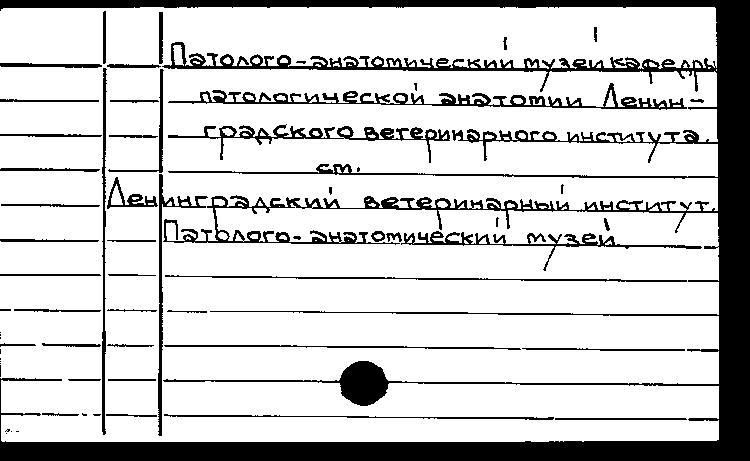 Патолого-анатомический музей кафедры
патологической анатомии Ленин-
градского ветеринарного института.
см.
Ленинградский ветеринарный институт.
Патолого-анатомический музей.